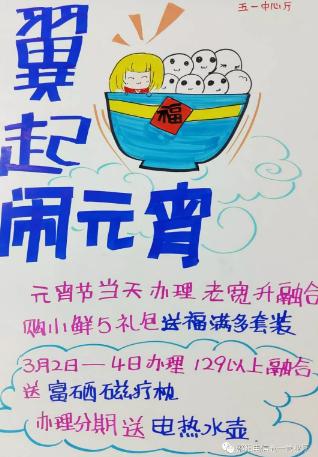 五一中心厅
翼
起
福
闹元宵
元宵节当天办理老宽升融合
购小鲜5礼包送福满多套装
3月2日—4日办理129以上融合
送富硒磁疗枕
办理分期送电热水壶